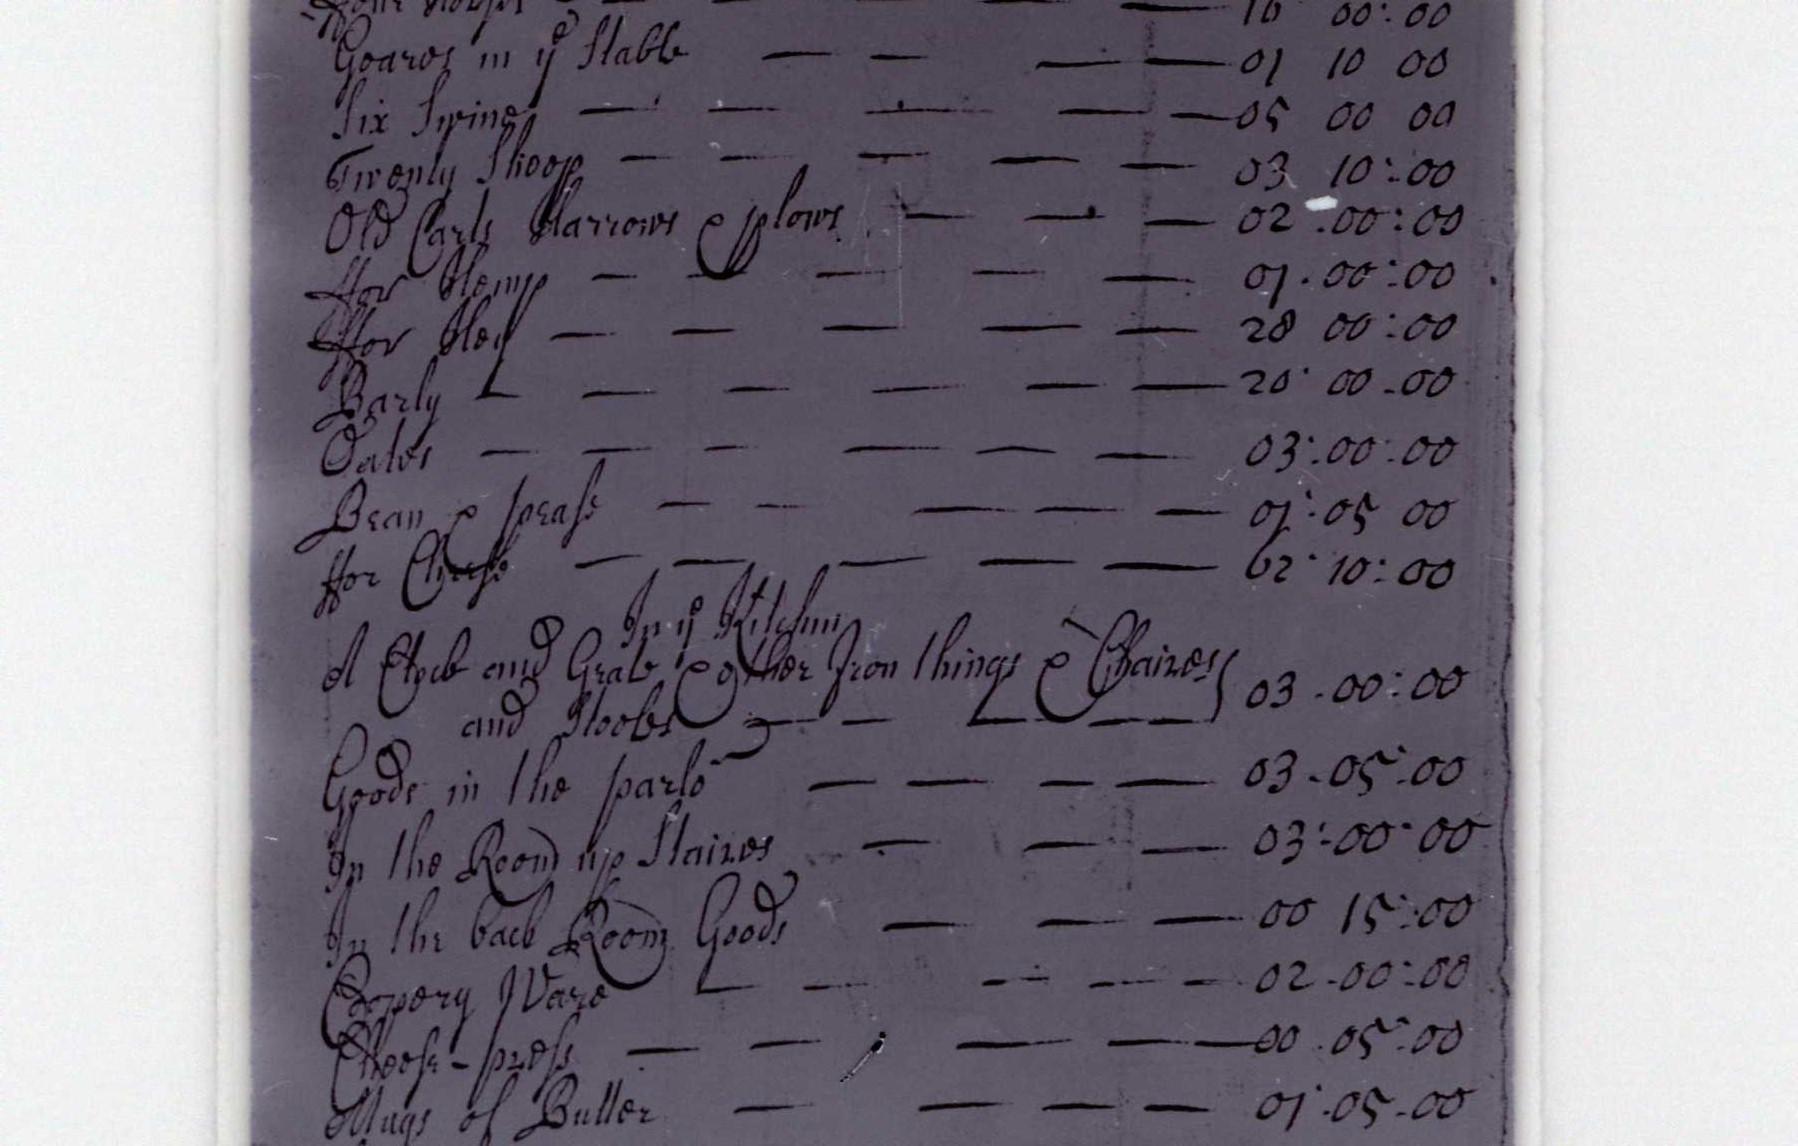 ffour Horses 16 00:00
Geares in ye Stable 01 10 00
Six Swine 05 00 00
Twenty Sheep 03 10:00
Old Carts Harrows & plows 02 .00:00
ffor Hemp 01.00:00
ffor Hey 28 00:00
Barly 20 00-00
Oates 03:00:00
Bean & pease 01:05 00
ffor Cheese 62 10:00
In ye Kitchin
A Clock and Grate & other Iron things & Chaires
and Stooles 03-00:00
Goods in the parlor 03-05:00
In the Room up Staires 03:00-00
In the back Room Goods 00 15:00
Copery Ware 02-00:00
Cheese-press 00.05:00
Mugs of Butter 01-05-00